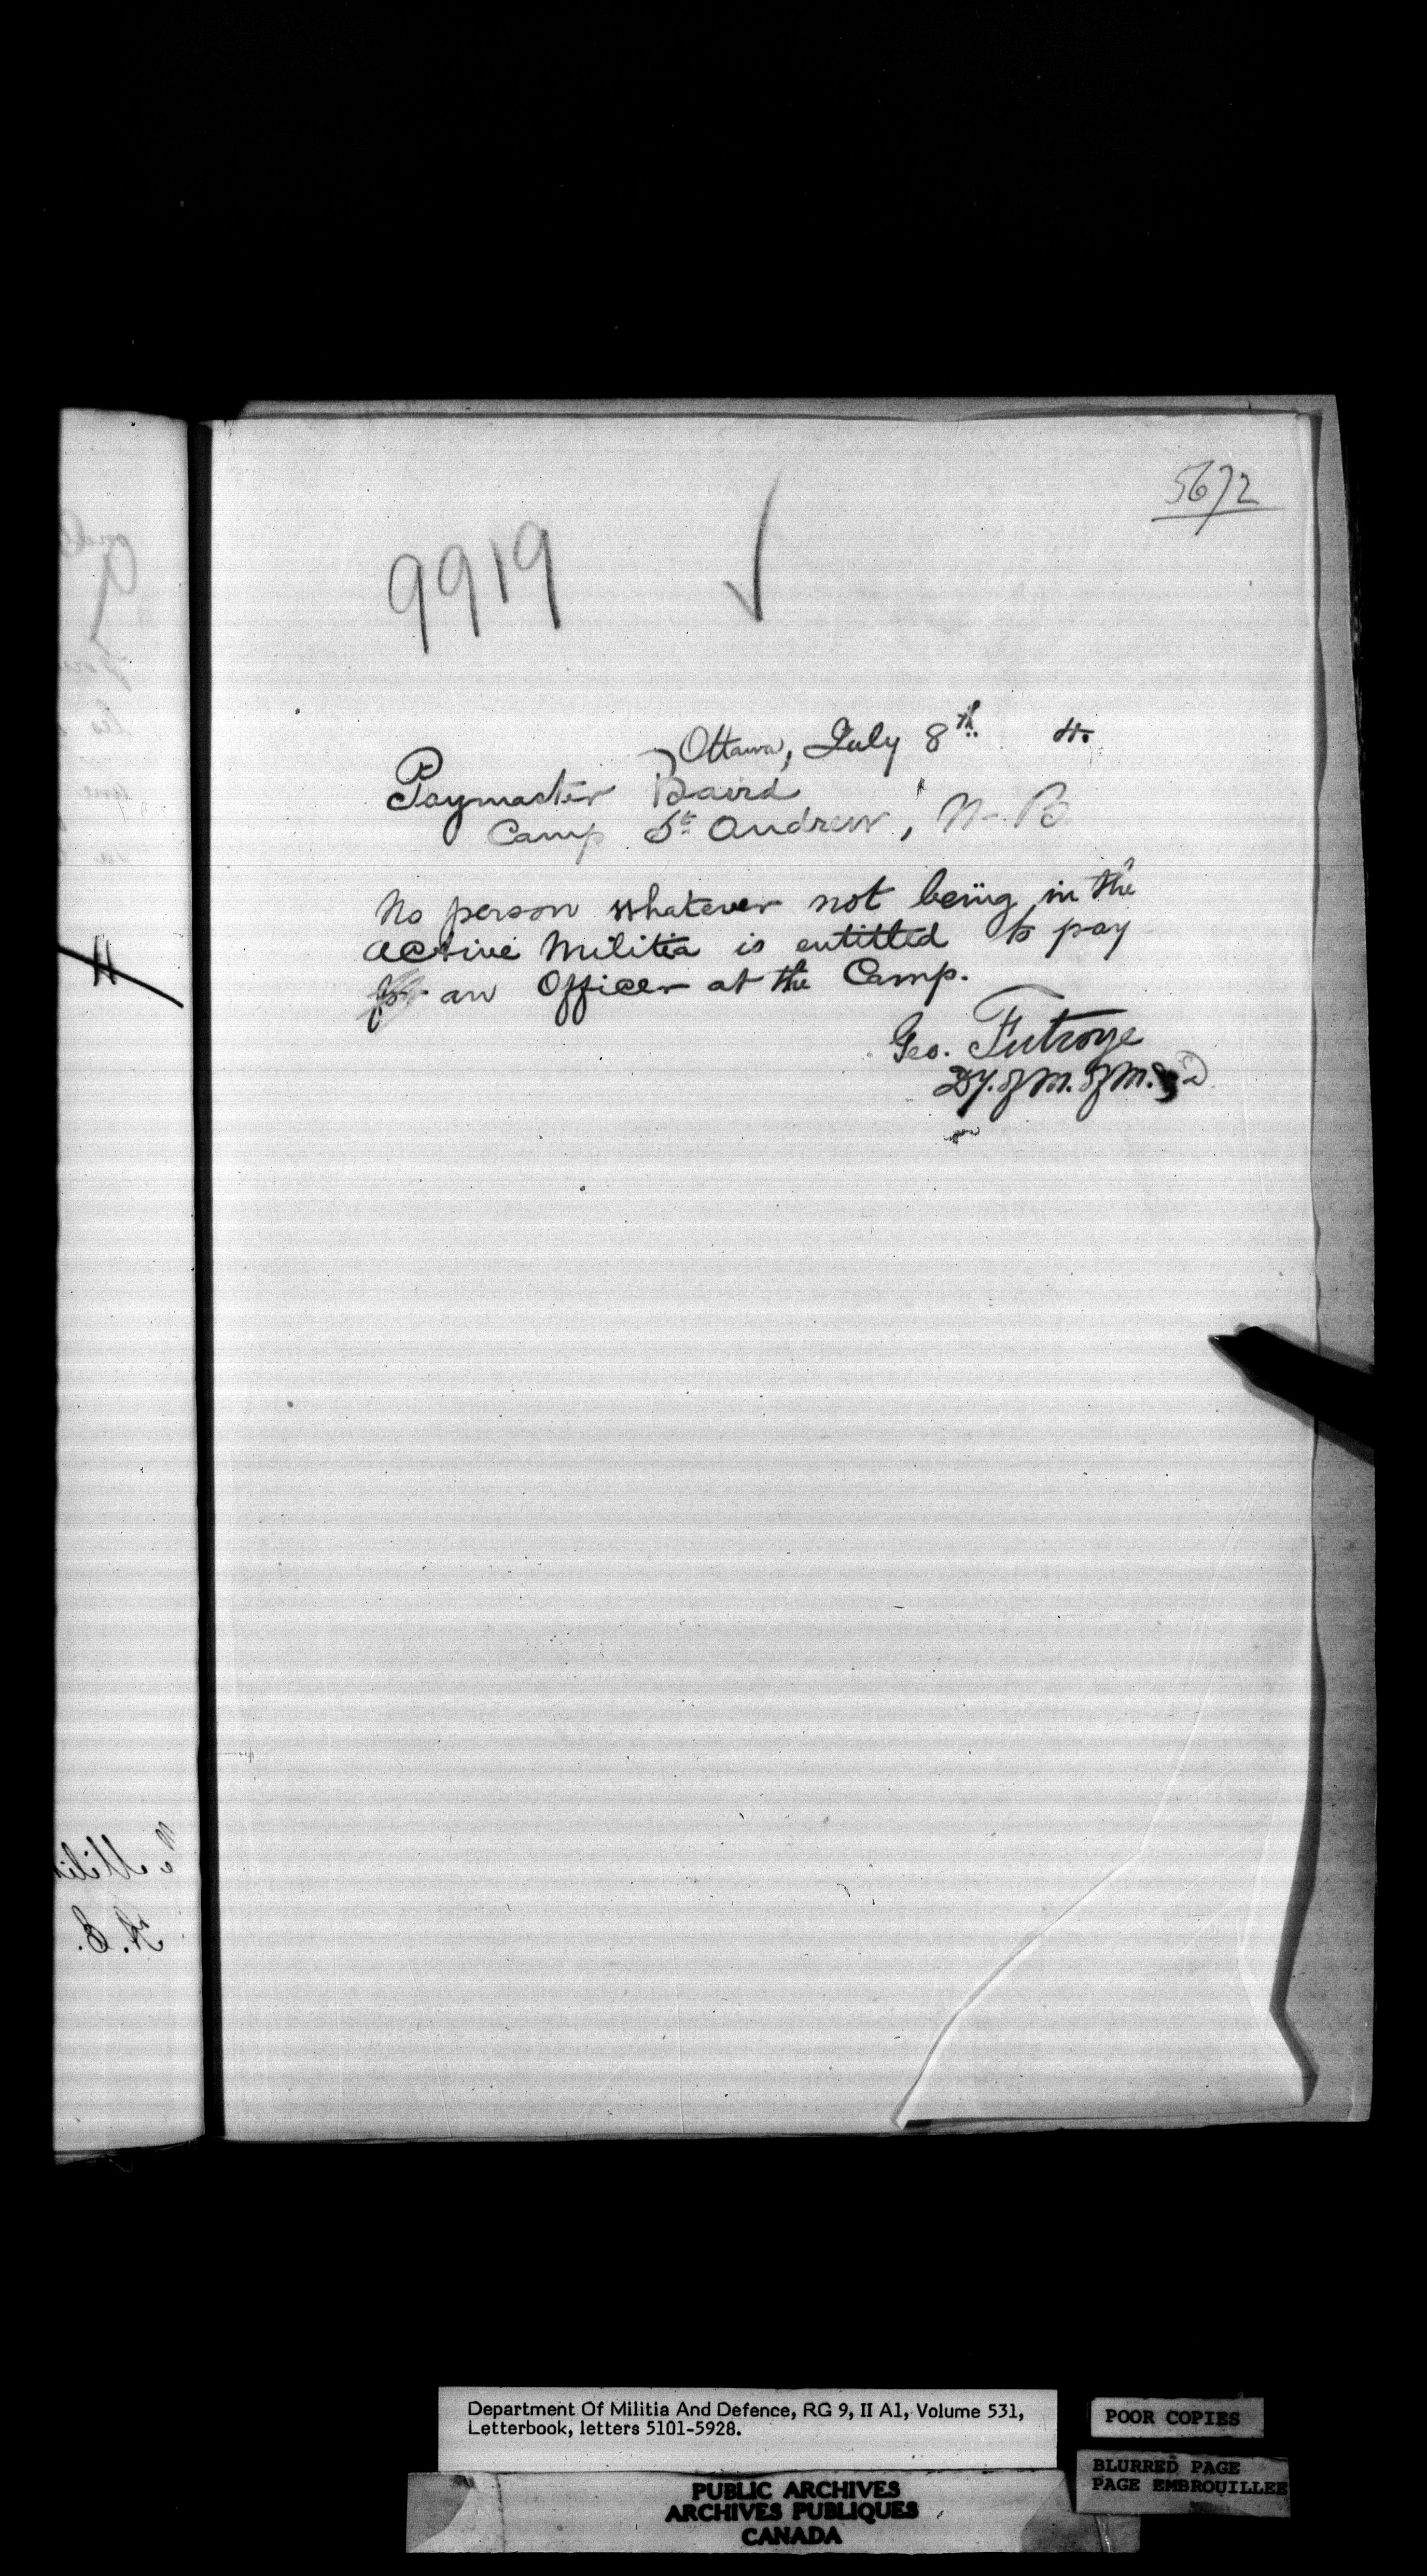 5672
9919
Ottawa, July 8th 4.
Paymaster Baird
Camp St Andrew, N. B.
No person whatever not being in the
active Militia is entitled to pay
an Officer at the Camp.
Geo. Futvoye
Dy. of M. of M. & D
Department Of Militia And Defence, RG 9, II A1, Volume 531,
Letterbook, letters 5101-5928.
POOR COPIES
BLURRED PAGE
PAGE EMBROUILLEE
PUBLIC ARCHIVES
ARCHIVES PUBLIQUES
CANADA